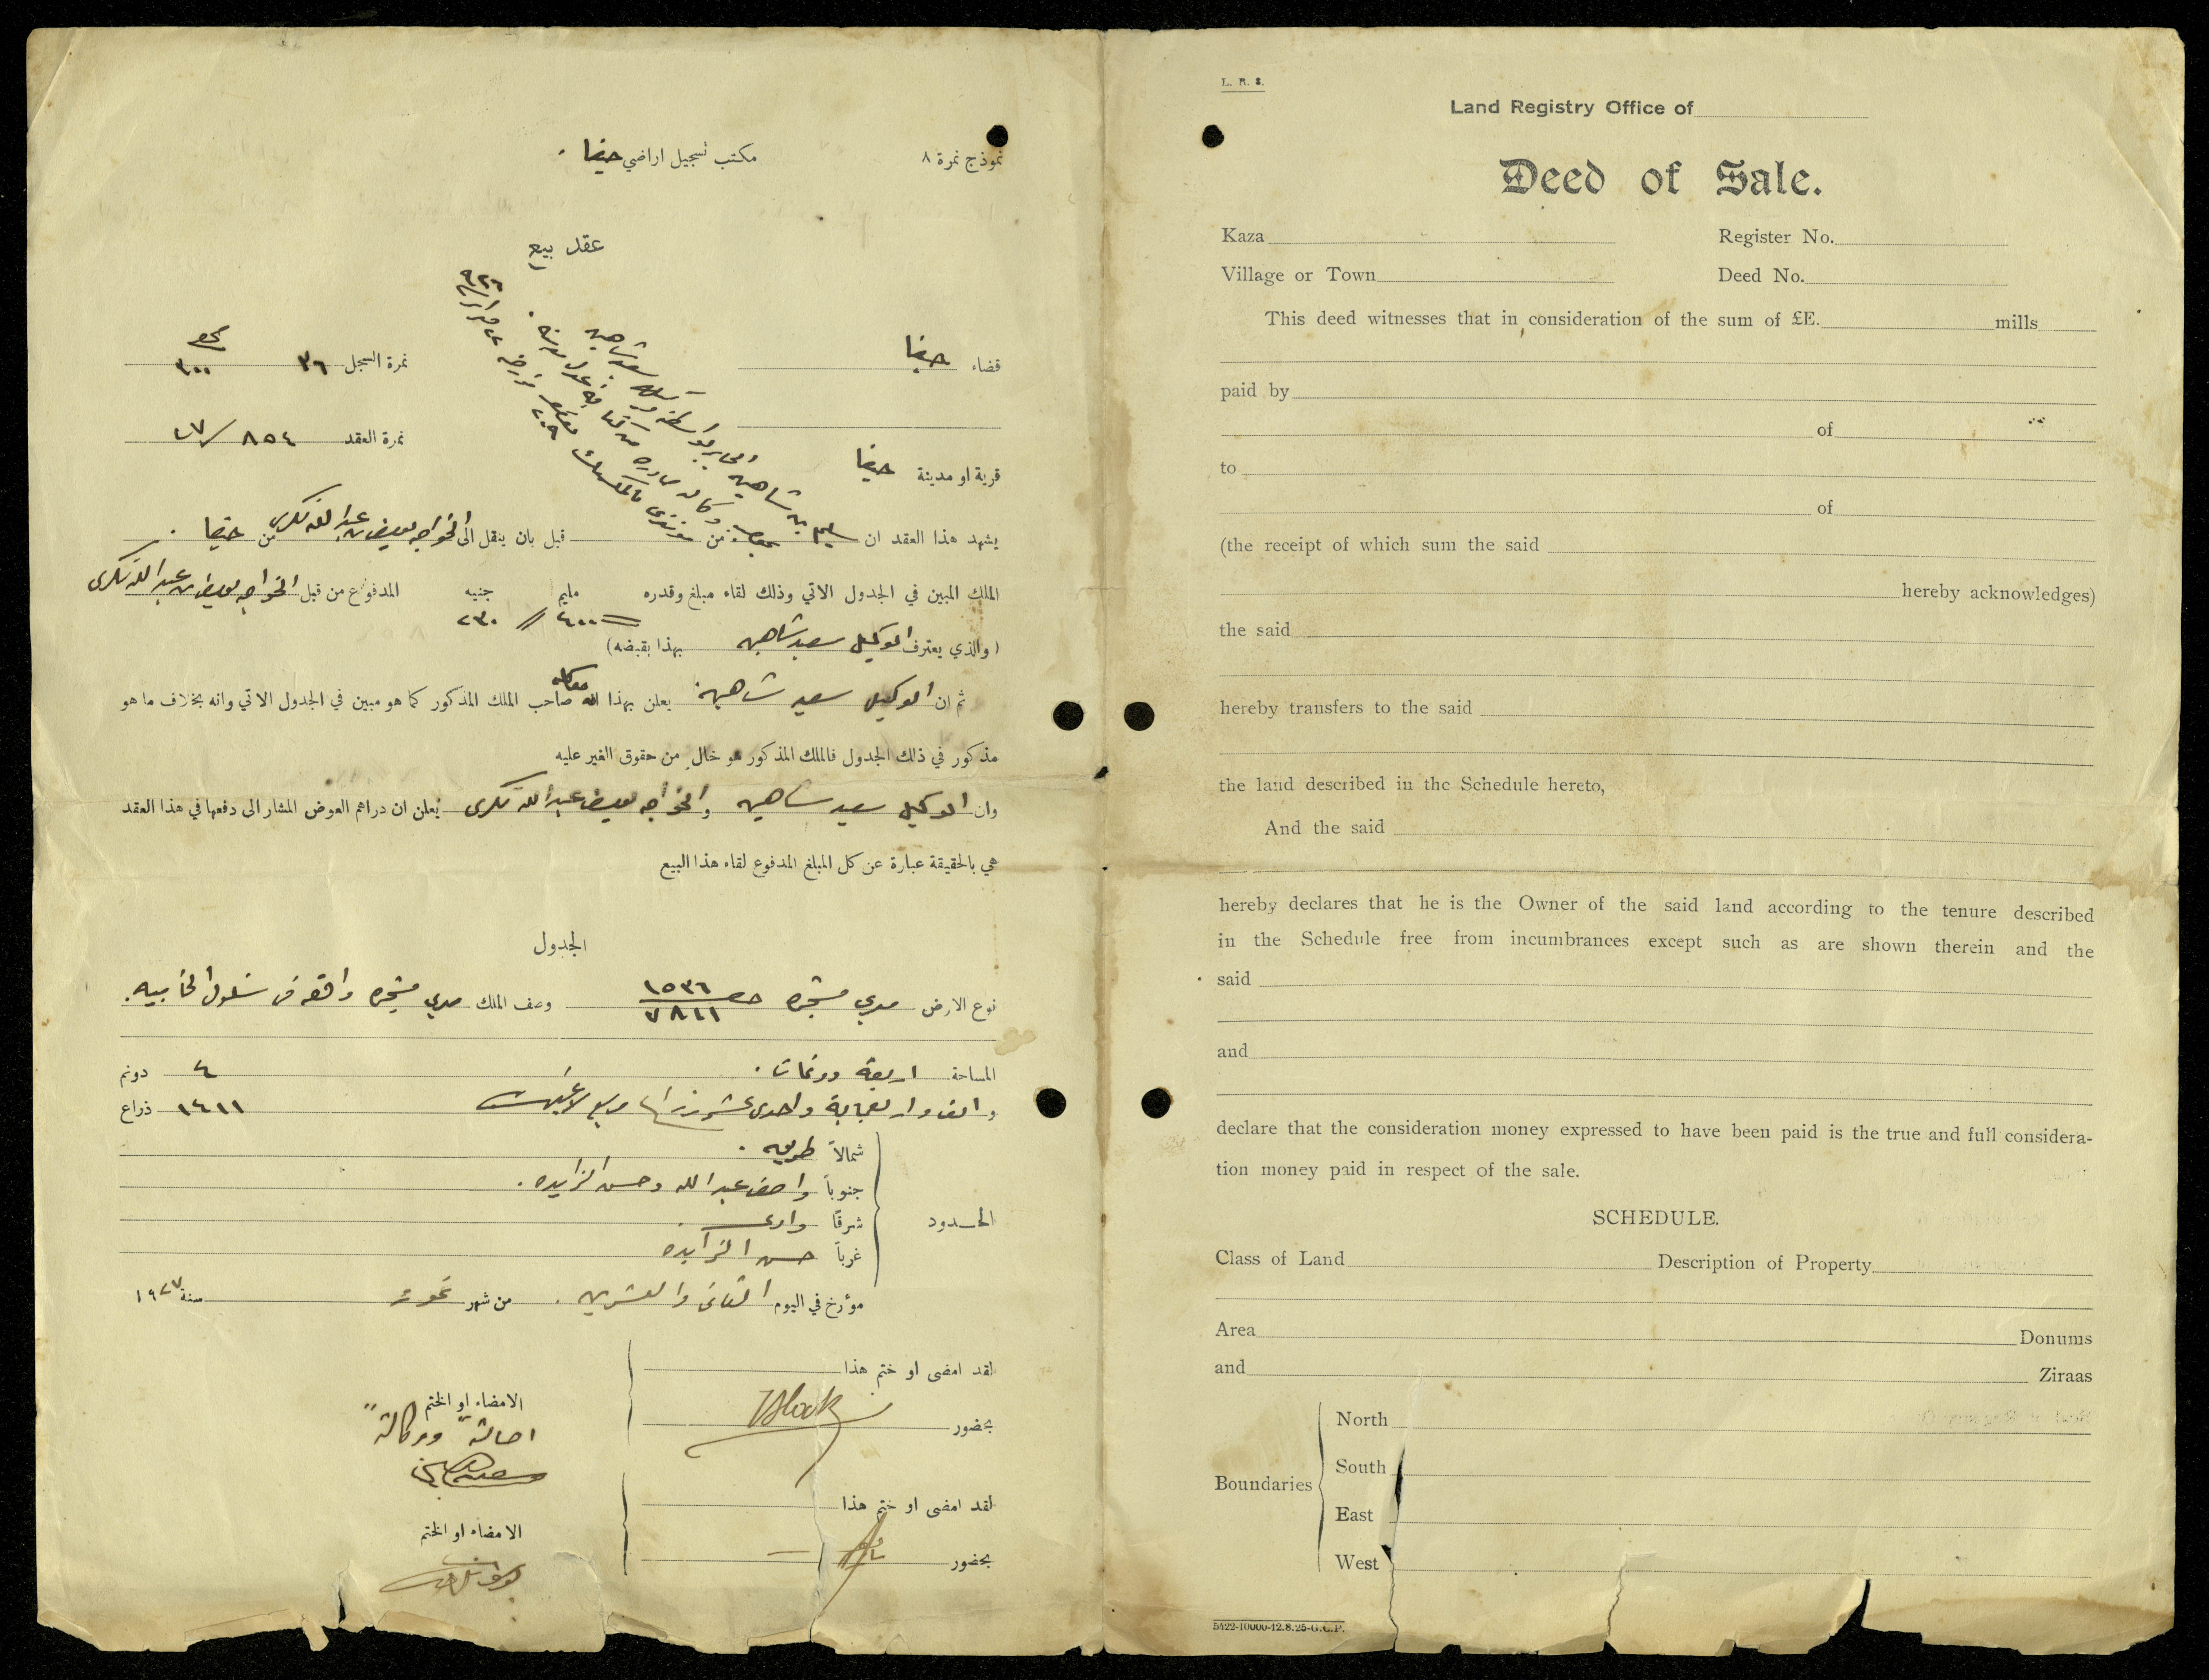 نموذج نمرة ٨
مكتب تسجيل اراضي حيفا .
عقد بيع
قضاء حيفا
نمرة السجل ٣٦
٣٠٠
قرية او مدينة حيفا
نمرة العقد ٨٥٤/٢٧
سليم بن شاهين
يشهد هذا العقد ان من قبل بان ينقل الى الخواجه عبدالله من حيفا .
الملك المبين في الجدول الاتي وذلك لقاء مبلغ وقدره مليم جنيه المدفوع من قبل الخواجه عبدالله
٤٠٠ // ٢٣٠
(والذي يعترف الوكيل سعيد شاهين بهذا بقبضه)
ثم ان الوكيل سعيد شاهين يعلن بهذا انه موكله صاحب الملك المذكور كما هو مبين في الجدول الاتي وانه بخلاف ما هو
مذكور في ذلك الجدول فالملك المذكور هو خال من حقوق الغير عليه
وان الوكيل سعيد شاهين والخواجه عبدالله يعلن ان دراهم العوض المشار الى دفعها في هذا العقد
هي بالحقيقة عبارة عن كل المبلغ المدفوع لقاء هذا البيع
الجدول
نوع الارض ميري مشجره ١٥٣٦ وصف الملك ميري مشجره واقعه في
المساحة اربعة دونمات . ٤ دونم
و الف واربعماية واحدى عشر ذراعا ١٤١١ ذراع
الحدود
شمالاً طريق .
جنوباً واصف عبدالله وحسن الزايده .
شرقاً وادي
غرباً حسن الزايده
مؤرخ في اليوم الثاني والعشرين . من شهر تموز سنة ١٩٢٧
لقد امضى او ختم هذا
بحضور
الامضاء او الختم
اصالة ووكالة
لقد امضى او ختم هذا
بحضور
الامضاء او الختم
L. R. 8.
Land Registry Office of
Deed of Sale.
Kaza Register No.
Village or Town Deed No.
This deed witnesses that in consideration of the sum of £E. mills
paid by
of
to
of
(the receipt of which sum the said
hereby acknowledges)
the said
hereby transfers to the said
the land described in the Schedule hereto,
And the said
hereby declares that he is the Owner of the said land according to the tenure described
in the Schedule free from incumbrances except such as are shown therein and the
said
and
declare that the consideration money expressed to have been paid is the true and full considera-
tion money paid in respect of the sale.
SCHEDULE.
Class of Land Description of Property
Area Donums
and Ziraas
Boundaries
North
South
East
West
5422-10000-12.8.25-G.C.P.